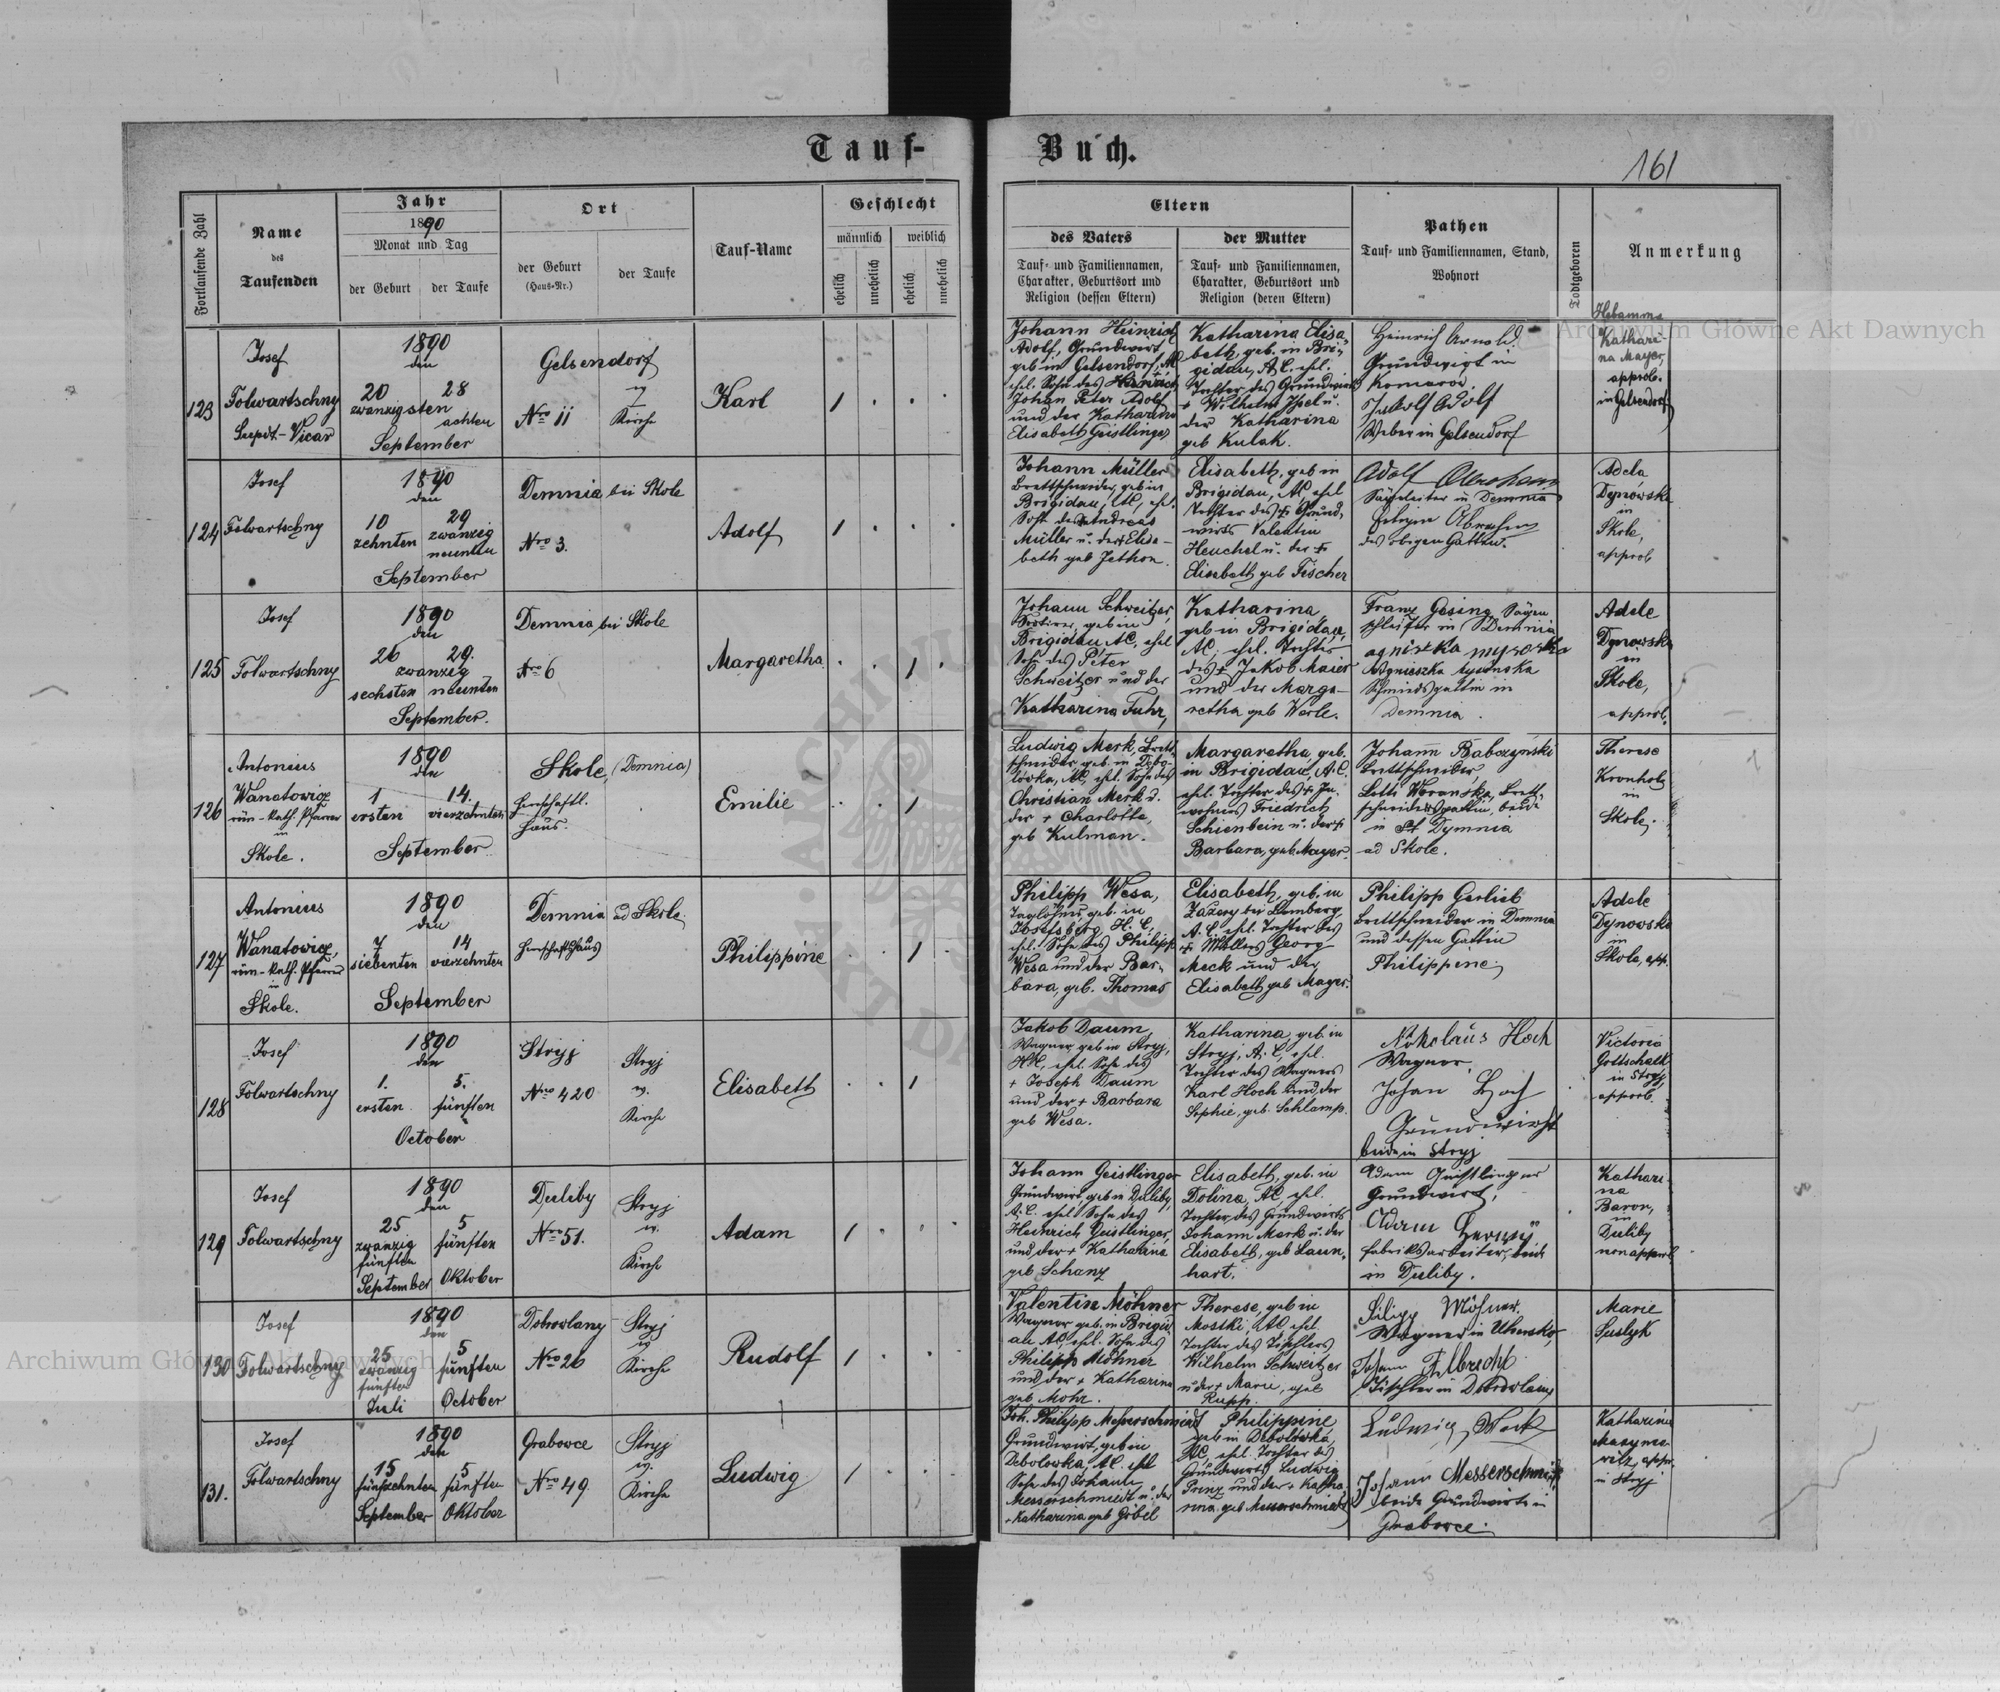 Tauf-Buch.
161
Fortlaufende Zahl
Name
des
Taufenden
Jahr
1890
Monat und Tag
der Geburt
der Taufe
Ort
der Geburt
(Haus-Nr.)
der Taufe
Tauf-Name
Geschlecht
männlich
weiblich
ehelich
unehelich
ehelich
unehelich
Eltern
des Vaters
Tauf- und Familiennamen,
Charakter, Geburtsort und
Religion (dessen Eltern)
der Mutter
Tauf- und Familiennamen,
Charakter, Geburtsort und
Religion (deren Eltern)
Pathen
Tauf- und Familiennamen, Stand,
Wohnort
Todtgeboren
Anmerkung
123
Josef
Folwartschny
Supdt-Vicar
1890
den
20
zwanzigsten
28
achten
September
Gelsendorf
Nro 11
Kirche
Karl
1
Johann Heinrich
Adolf, Grundwirt,
geb in Gelsendorf, AC
ehel. Sohn des
Johan Peter Adolf
und der Katharina
Elisabeth Geistlinger
Katharina Elisa-
beth, geb. in Bri-
gidau, A.C. ehel.
Tochter des Grundwirts
+ Wilhelm u.
der Katharina
geb Kulak.
Heinrich Arnold
Grundwirt in
Komarow.
Jakob Adolf
Weber in Gelsendorf
Hebamme
Kathari-
na Mayer,
approb.
in Gelsendorf
124
Josef
Folwartschny
1890
den
10
zehnten
29
zwanzig
neunten
September
Demnia bei Skole
Nro 3.
Adolf
1
Johann Müller
Brettschneider, geb in
Brigidau, AC, ehel.
Sohn des Andreas
Müller u. der Elisa-
beth geb Jethon.
Elisabeth, geb in
Brigidau, AC, ehel
Tochter des + Grund-
wirts Valentin
Heuchel u. der +
Elisabeth geb Fischer
Adolf
in Demnia
des obigen Gattin.
Adela
Dynowska
in
Skole,
approb
125
Josef
Folwartschny
1890
den
26
29.
zwanzig
sechsten neunten
September.
Demnia bei Skole
Nro 6
Margaretha
1
Johann Schweitzer,
geb in
Brigidau, AC, ehel
Sohn des Peter
Schweitzer und der
Katharina Fuhr,
Katharina
geb in Brigidau,
AC, ehel. Tochter
des + Jakob Maier
und der Marga-
retha geb Werle.
Franz Gesing, Sägen
schleifer in Demnia
Agnieszka
Schmiedsgattin in
Demnia.
Adele
Dynowska
in
Skole,
approb.
126
Antonius
Wanatowicz
röm-kath. Pfarrer
in
Skole.
1890
den
1
ersten
14.
vierzehnten
September
Skole, (Demnia)
Herrschaftl.
Haus.
Emilie
1
Ludwig Merk, Brett-
schneider geb. in Debo-
lówka, AC, ehel. Sohn des
Christian Merk u.
der + Charlotte,
geb Kulman.
Margaretha, geb.
in Brigidau, A.C.
ehel. Tochter des + In-
wohners Friedrich
Schienbein u. der +
Barbara, geb Mayer.
Johann Babczyński
Brettschneider,
Brett-
schneidersgattin, beide
in Dymnia
ad Skole.
Therese
Kronholz
in
Skole.
127
Antonius
Wanatowicz,
röm-kath. Pfarrer
in
Skole.
1890
den
7
siebenten
14
vierzehnten
September
Demnia ad Skole
Herrschaftshaus
Philippine
1
Philipp Wesa,
Taglöhner, geb. in
Josefsberg H.C.,
ehel. Sohn des Philipp
Wesa und der Bar-
bara, geb. Thomas
Elisabeth, geb. in
bei Lemberg,
A.C. ehel. Tochter des
+ Müllers Georg
Meck und der
Elisabeth geb Mayer.
Philipp Gerlieb
Brettschneider in Demnia
und dessen Gattin
Philippine.
Adele
Dynowska
in
Skole, app.
128
Josef
Folwartschny
1890
den
1.
ersten
5.
fünften
October
Stryj
Nro 420
Stryj
Kirche
Elisabeth
1
Jakob Daum,
Wagner geb in Stryj,
ehel. Sohn des
+ Joseph Daum
und der + Barbara
geb Wesa.
Katharina, geb. in
Stryj, A.C., ehel.
Tochter des Wagners
Karl Hoch und der
Sophie, geb. Schlamp.
Nikolaus Hoch
Wagner,
Johan Hoch
Grundwirth
beide in Stryj
Victoria
Gottschalk
in Stryj,
approb.
129
Josef
Folwartschny
1890
den
25
zwanzig
fünften
September
5
fünften
Oktober
Duliby
Nro 51.
Stryj
Kirche
Adam
1
Johann Geistlinger
Grundwirt, geb in Duliby,
A.C. ehel. Sohn des
Heinrich Geistlinger,
und der + Katharina
geb Schanz
Elisabeth, geb. in
Dolina, AC, ehel.
Tochter des Grundwirts
Johann Merk u. der
Elisabeth, geb Laun-
hart.
Adam Geistlinger
Grundwirt,
Adam
Fabriksarbeiter, beide
in Duliby.
Kathari-
na
Baron,
in
Duliby
non approb.
130
Josef
Folwartschny
1890
den
25
zwanzig
fünften
Juli
5
fünften
October
Dobrowlany
Nro 26
Stryj
Kirche
Rudolf
1
Valentin Möhner
Wagner geb. in Brigid-
au AC, ehel. Sohn des
Philipp Möhner
und der + Katharina
geb Mohr.
Therese, geb in
Mostki, AC, ehel
Tochter des Tischlers
Wilhelm Schweitzer
u der + Marie, geb
Rupp.
Filipp Möhner.
Wagner in Uhersko,
Johann Albrecht
Tischler in Dobrowlany
Marie
Suslyk
131.
Josef
Folwartschny
1890
den
15
fünfzehnten
September
5
fünften
Oktober
Grabowce
Nro 49.
Stryj
Kirche
Ludwig
1
Joh. Philipp Messerschmidt
Grundwirt, geb in
Debolowka, AC. ehl
Sohn des Johann
Messerschmiedt u. der
+ Katharina geb Göbel
Philippine
geb in Debolówka,
AC, ehel. Tochter des
Grundwirts Ludwig
Prinz und der + Katha-
rina geb Messerschmidt
Ludwig
Johann Messerschmidt
beide Grundwirte in
Grabowce.
Katharina
in Stryj
Archiwum Główne Akt Dawnych
Archiwum Główne Akt Dawnych